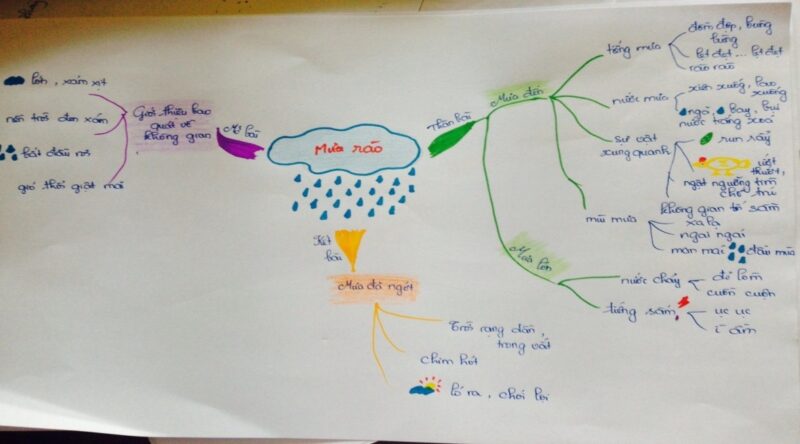 Mưa rào
Mở bài
Giới thiệu bao
quát về
không gian
lớn, xám xịt
nền trời đen xám
bắt đầu rơi
gió thổi giật mái
Thân bài
Mưa đến
tiếng mưa
đồm độp, bùng
bùng
lẹt đẹt ... lẹt đẹt
rào rào
nước mưa
xiên xuống, lao
xuống
ngả, bay, bụi
nước trắng xoá
sự vật
xung quanh
run rẩy
ướt
thướt,
ngật ngưỡng tìm
chỗ trú
không gian tối sầm
mùi mưa
xa lạ
ngai ngái
man mát đầu mùa
Mưa lớn
nước chảy
đỏ lòm
cuồn cuộn
tiếng sấm
ục ục
ì ầm
Kết
bài
Mưa đã ngớt
Trời rạng dần,
trong vắt
chim hót
ló ra, chói lọi